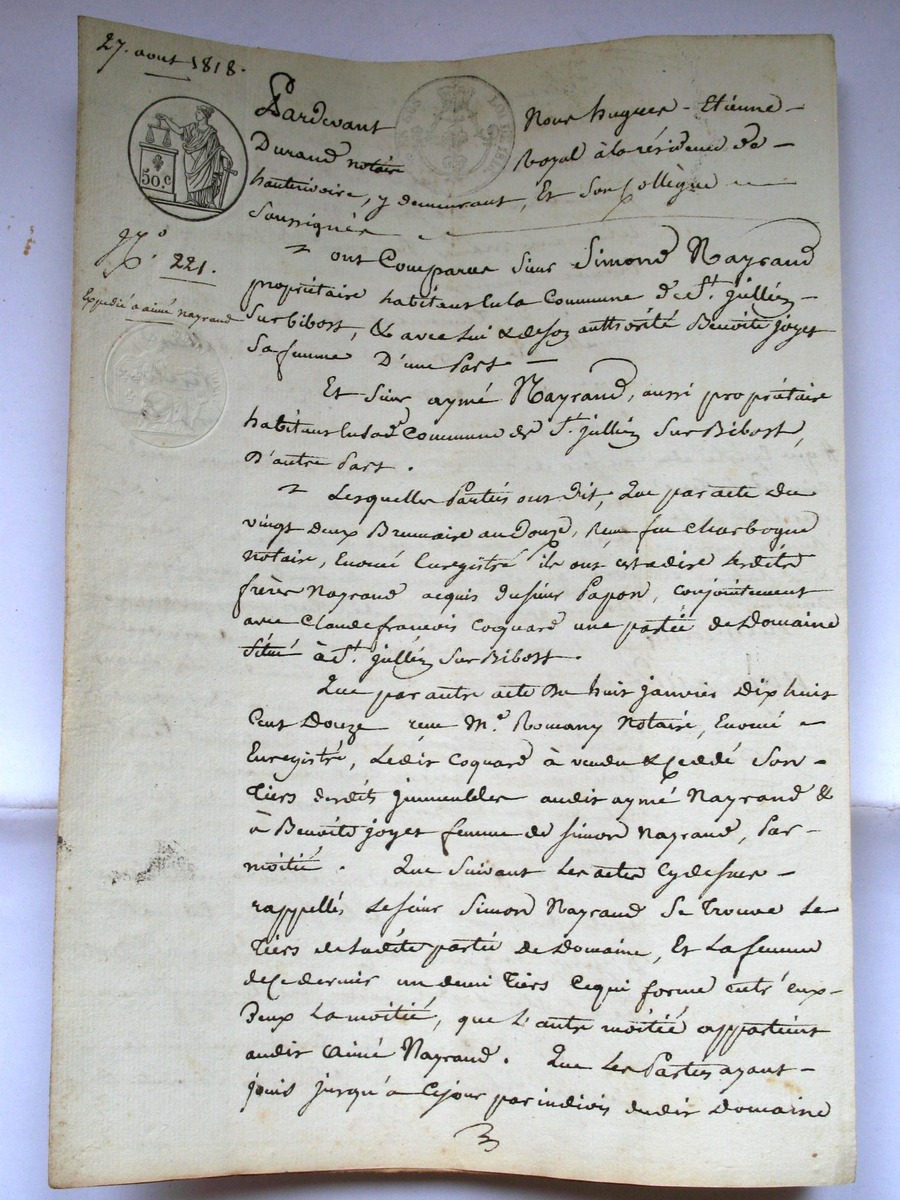 27. aout 1818.
Pardevant Nous hugues-Etienne-
Durand notaire Royal à la résidence de
hauterivoire, y demeurant, Et Son Collègue
Soussignés
50. c
N.o 221.
Expédié a aimé Nayrand
ont Comparus Sieur Simond Nayrand
propriétaire habitant en la Commune de St. jullien-
Sur bibost, & avec lui & de son authorité Benoite joyet
Sa femme D'une part
Et Sieur aymé Nayrand, aussi propriétaire
habitant en lade. Commune de St. jullien Sur Bibost,
D'autre part.
Lesquelles Parties ont dit, que par acte du
vingt deux Brumaire an Douze, Reçu feu Charbogne
notaire, Enoncé Enregistré ils ont cestadire lesdits
frères Nayrand acquis du sieur Papon, conjointement
avec Claude francois Coquard une partie de Domaine
Situé à St. jullien Sur Bibost.
Que par autre acte Du huit janvier dix huit
Cent Douze reçu Me. Romany Notaire, Enoncé
Enregistré, Ledit Coquard à vendu & Ceddé Son-
Tiers desdits jmmeubles audit aymé Nayrand &
à Benoite joyet femme de simon Nayrand, Par-
moitié. Que Suivant Les actes Cy dessus-
rappellés Le sieur Simon Nayrand Se Trouve Le
Tiers de ladite partie de Domaine, Et La femme
de Ce dernier un demi Tiers Ce qui forme entr'eux-
Deux La moitié, que L'autre moitié appartient
audit Aimé Nayrand. Que Les Parties ayant-
jouis jusqu'à Ce jour par indivis dudit Domaine